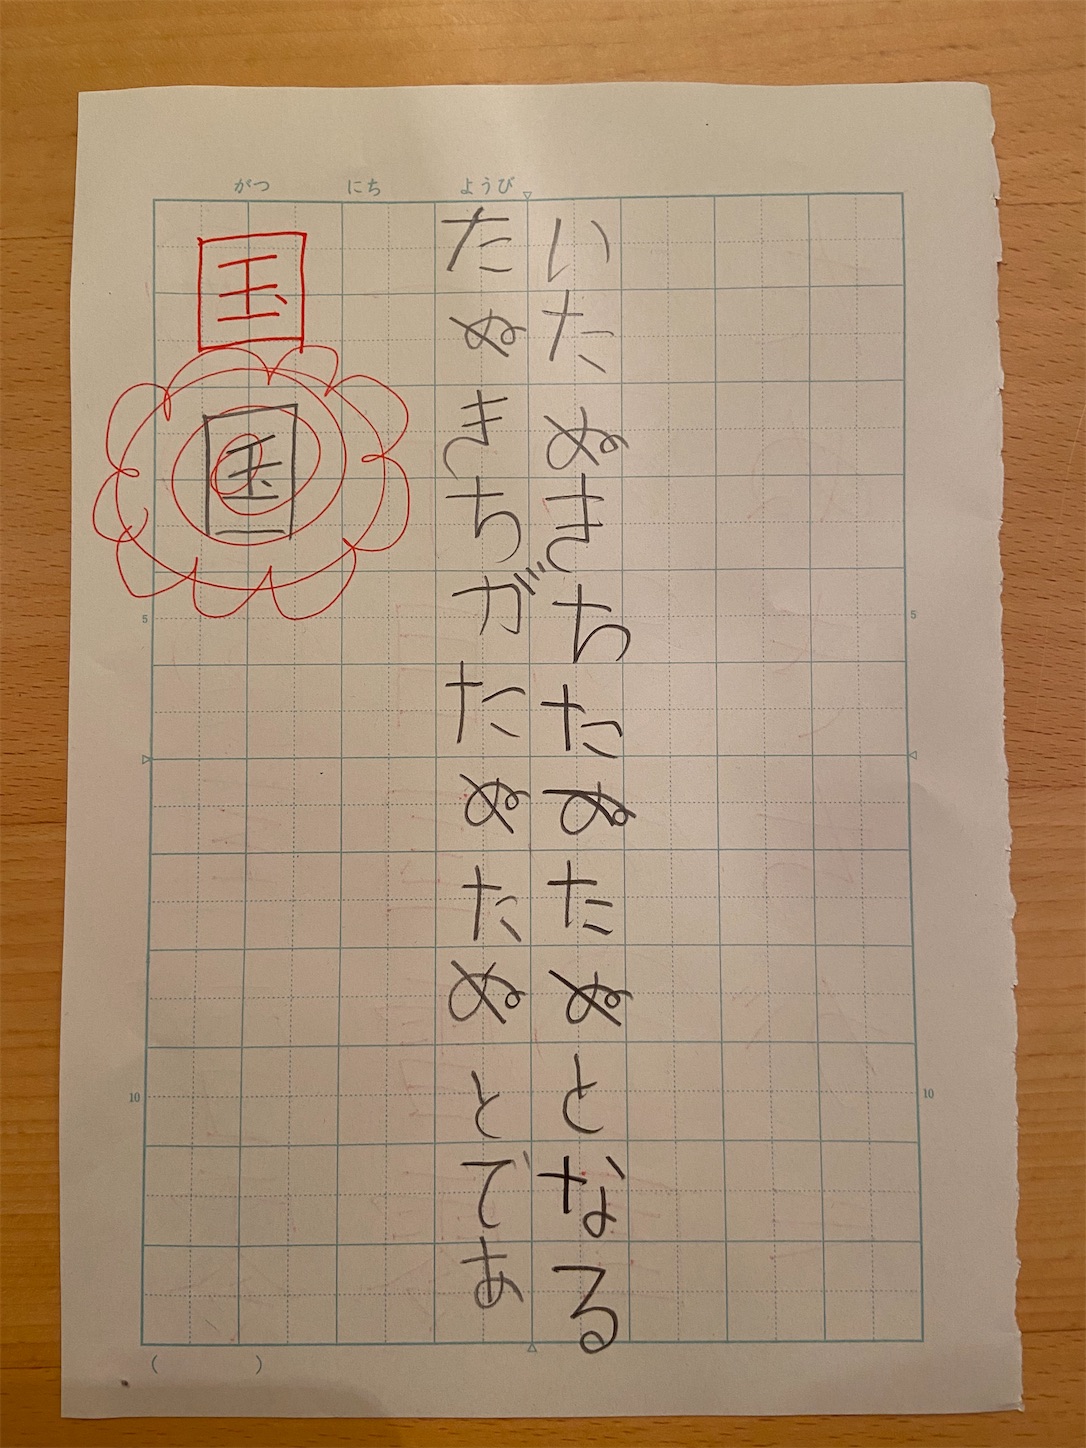 がつ　にち　ようび
いたぬきちたぬたぬとなる
たぬきちがたぬたぬとであ
国
国
5
10
5
10
(　　)